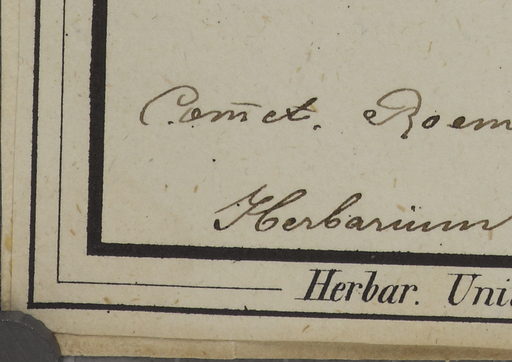 Com̄et. Roem
Herbarium
Herbar. Uni